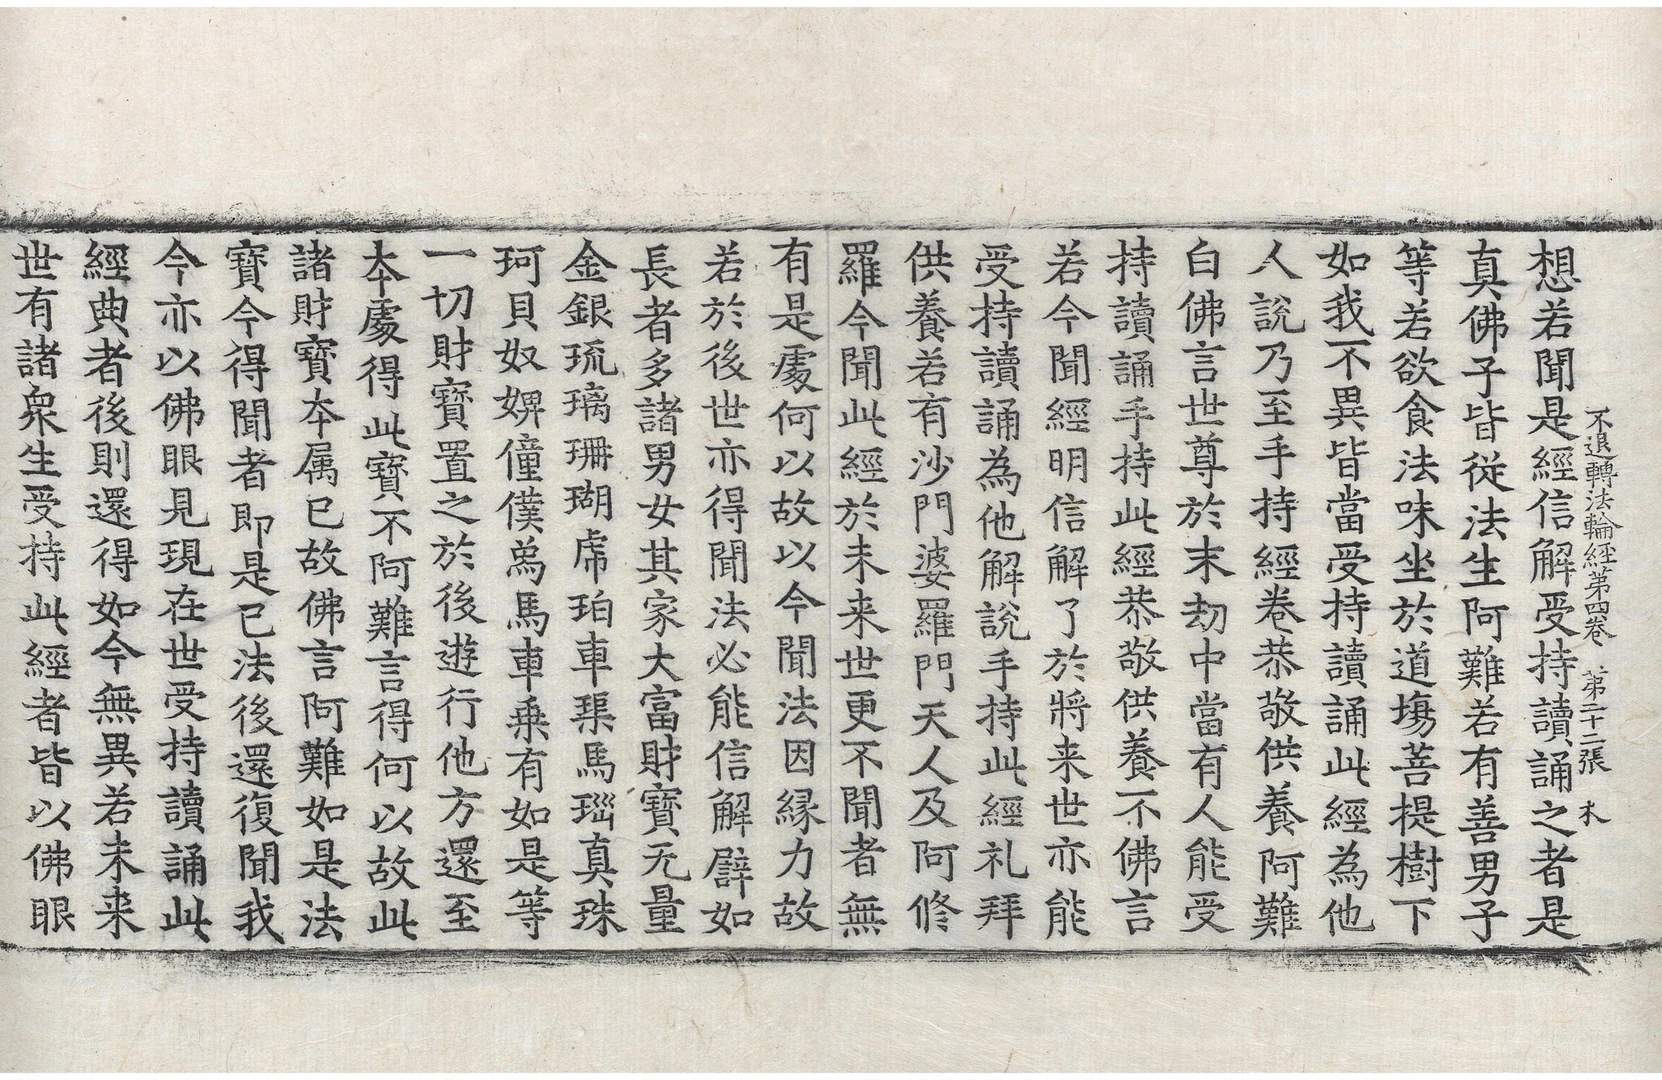 不退轉法輪經第四卷　第二十二張　木
想若聞是經信解受持讀誦之者是
真佛子皆從法生阿難若有善男子
等若欲食法味坐於道場菩提樹下
如我不異皆當受持讀誦此經為他
人說乃至手持經卷恭敬供養阿難
白佛言世尊於末劫中當有人能受
持讀誦手持此經恭敬供養不佛言
若今聞經明信解了於將来世亦能
受持讀誦為他解說手持此經礼拜
供養若有沙門婆羅門天人及阿修
羅今聞此經於未来世更不聞者無
有是處何以故以今聞法因緣力故
若於後世亦得聞法必能信解譬如
長者多諸男女其家大富財寶无量
金銀琉璃珊瑚虎珀車𤦲馬瑙真珠
珂貝奴婢僮僕象馬車乘有如是等
一切財寶置之於後遊行他方還至
本處得此寶不阿難言得何以故此
諸財寶本属已故佛言阿難如是法
寶今得聞者即是已法後還復聞我
今亦以佛眼見現在世受持讀誦此
經典者後則還得如今無異若未来
世有諸衆生受持此經者皆以佛眼